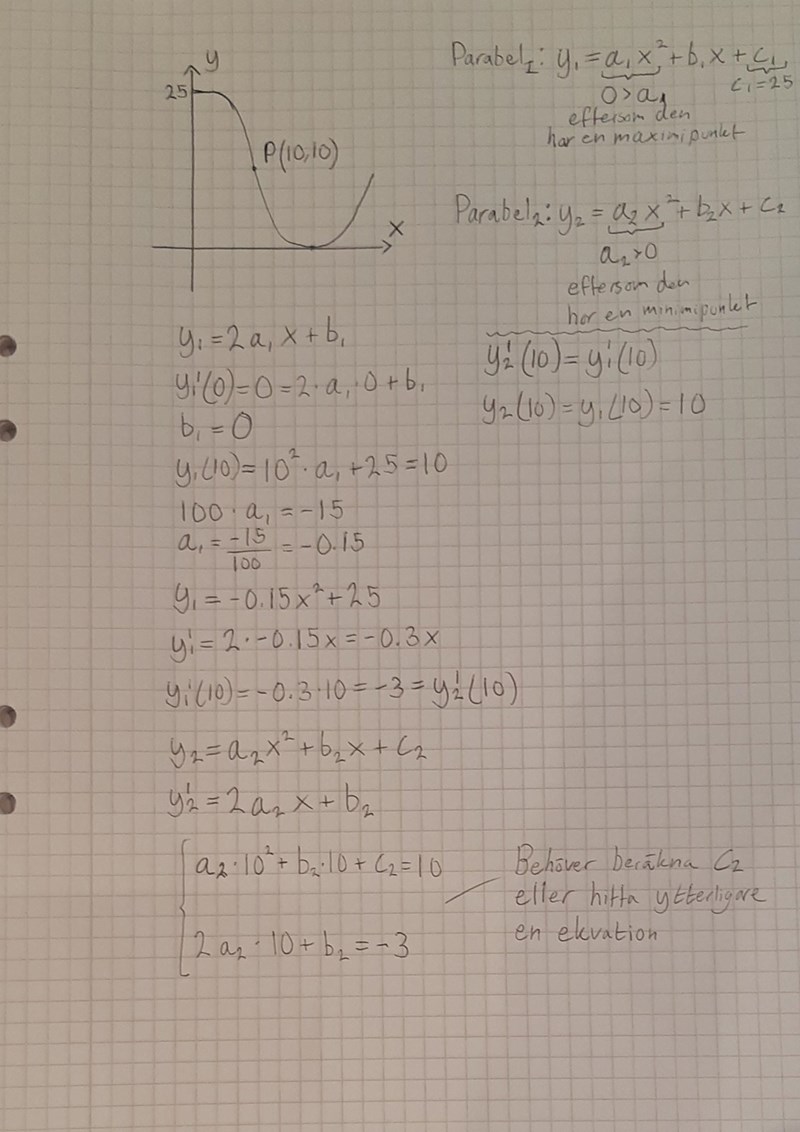 y
25
P(10,10)
x
Parabel₁: y₁ = a₁x² + b₁x + c₁
0 > a₁
c₁ = 25
eftersom den
har en maximipunkt
Parabel₂: y₂ = a₂x² + b₂x + c₂
a₂ > 0
eftersom den
har en minimipunkt
y₂'(10) = y₁'(10)
y₂(10) = y₁(10) = 10
y₁ = 2a₁x + b₁
y₁'(0) = 0 = 2·a₁·0 + b₁
b₁ = 0
y₁(10) = 10²·a₁ + 25 = 10
100·a₁ = -15
a₁ = -15/100 = -0.15
y₁ = -0.15x² + 25
y₁' = 2·-0.15x = -0.3x
y₁'(10) = -0.3·10 = -3 = y₂'(10)
y₂ = a₂x² + b₂x + c₂
y₂' = 2a₂x + b₂
a₂·10² + b₂·10 + c₂ = 10
2a₂·10 + b₂ = -3
Behöver beräkna c₂
eller hitta ytterligare
en ekvation